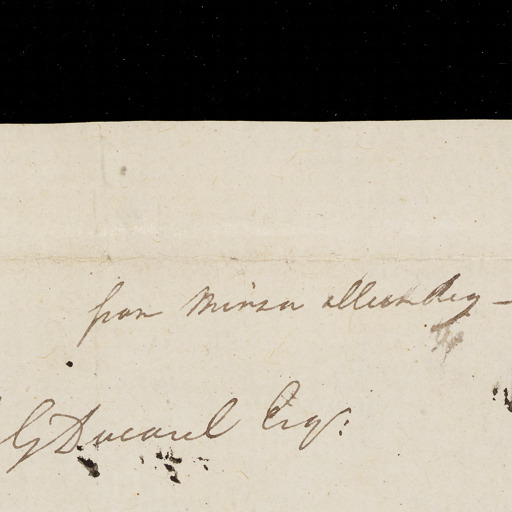 from Mirza Allees Beg –
G Ducarel Esqr: